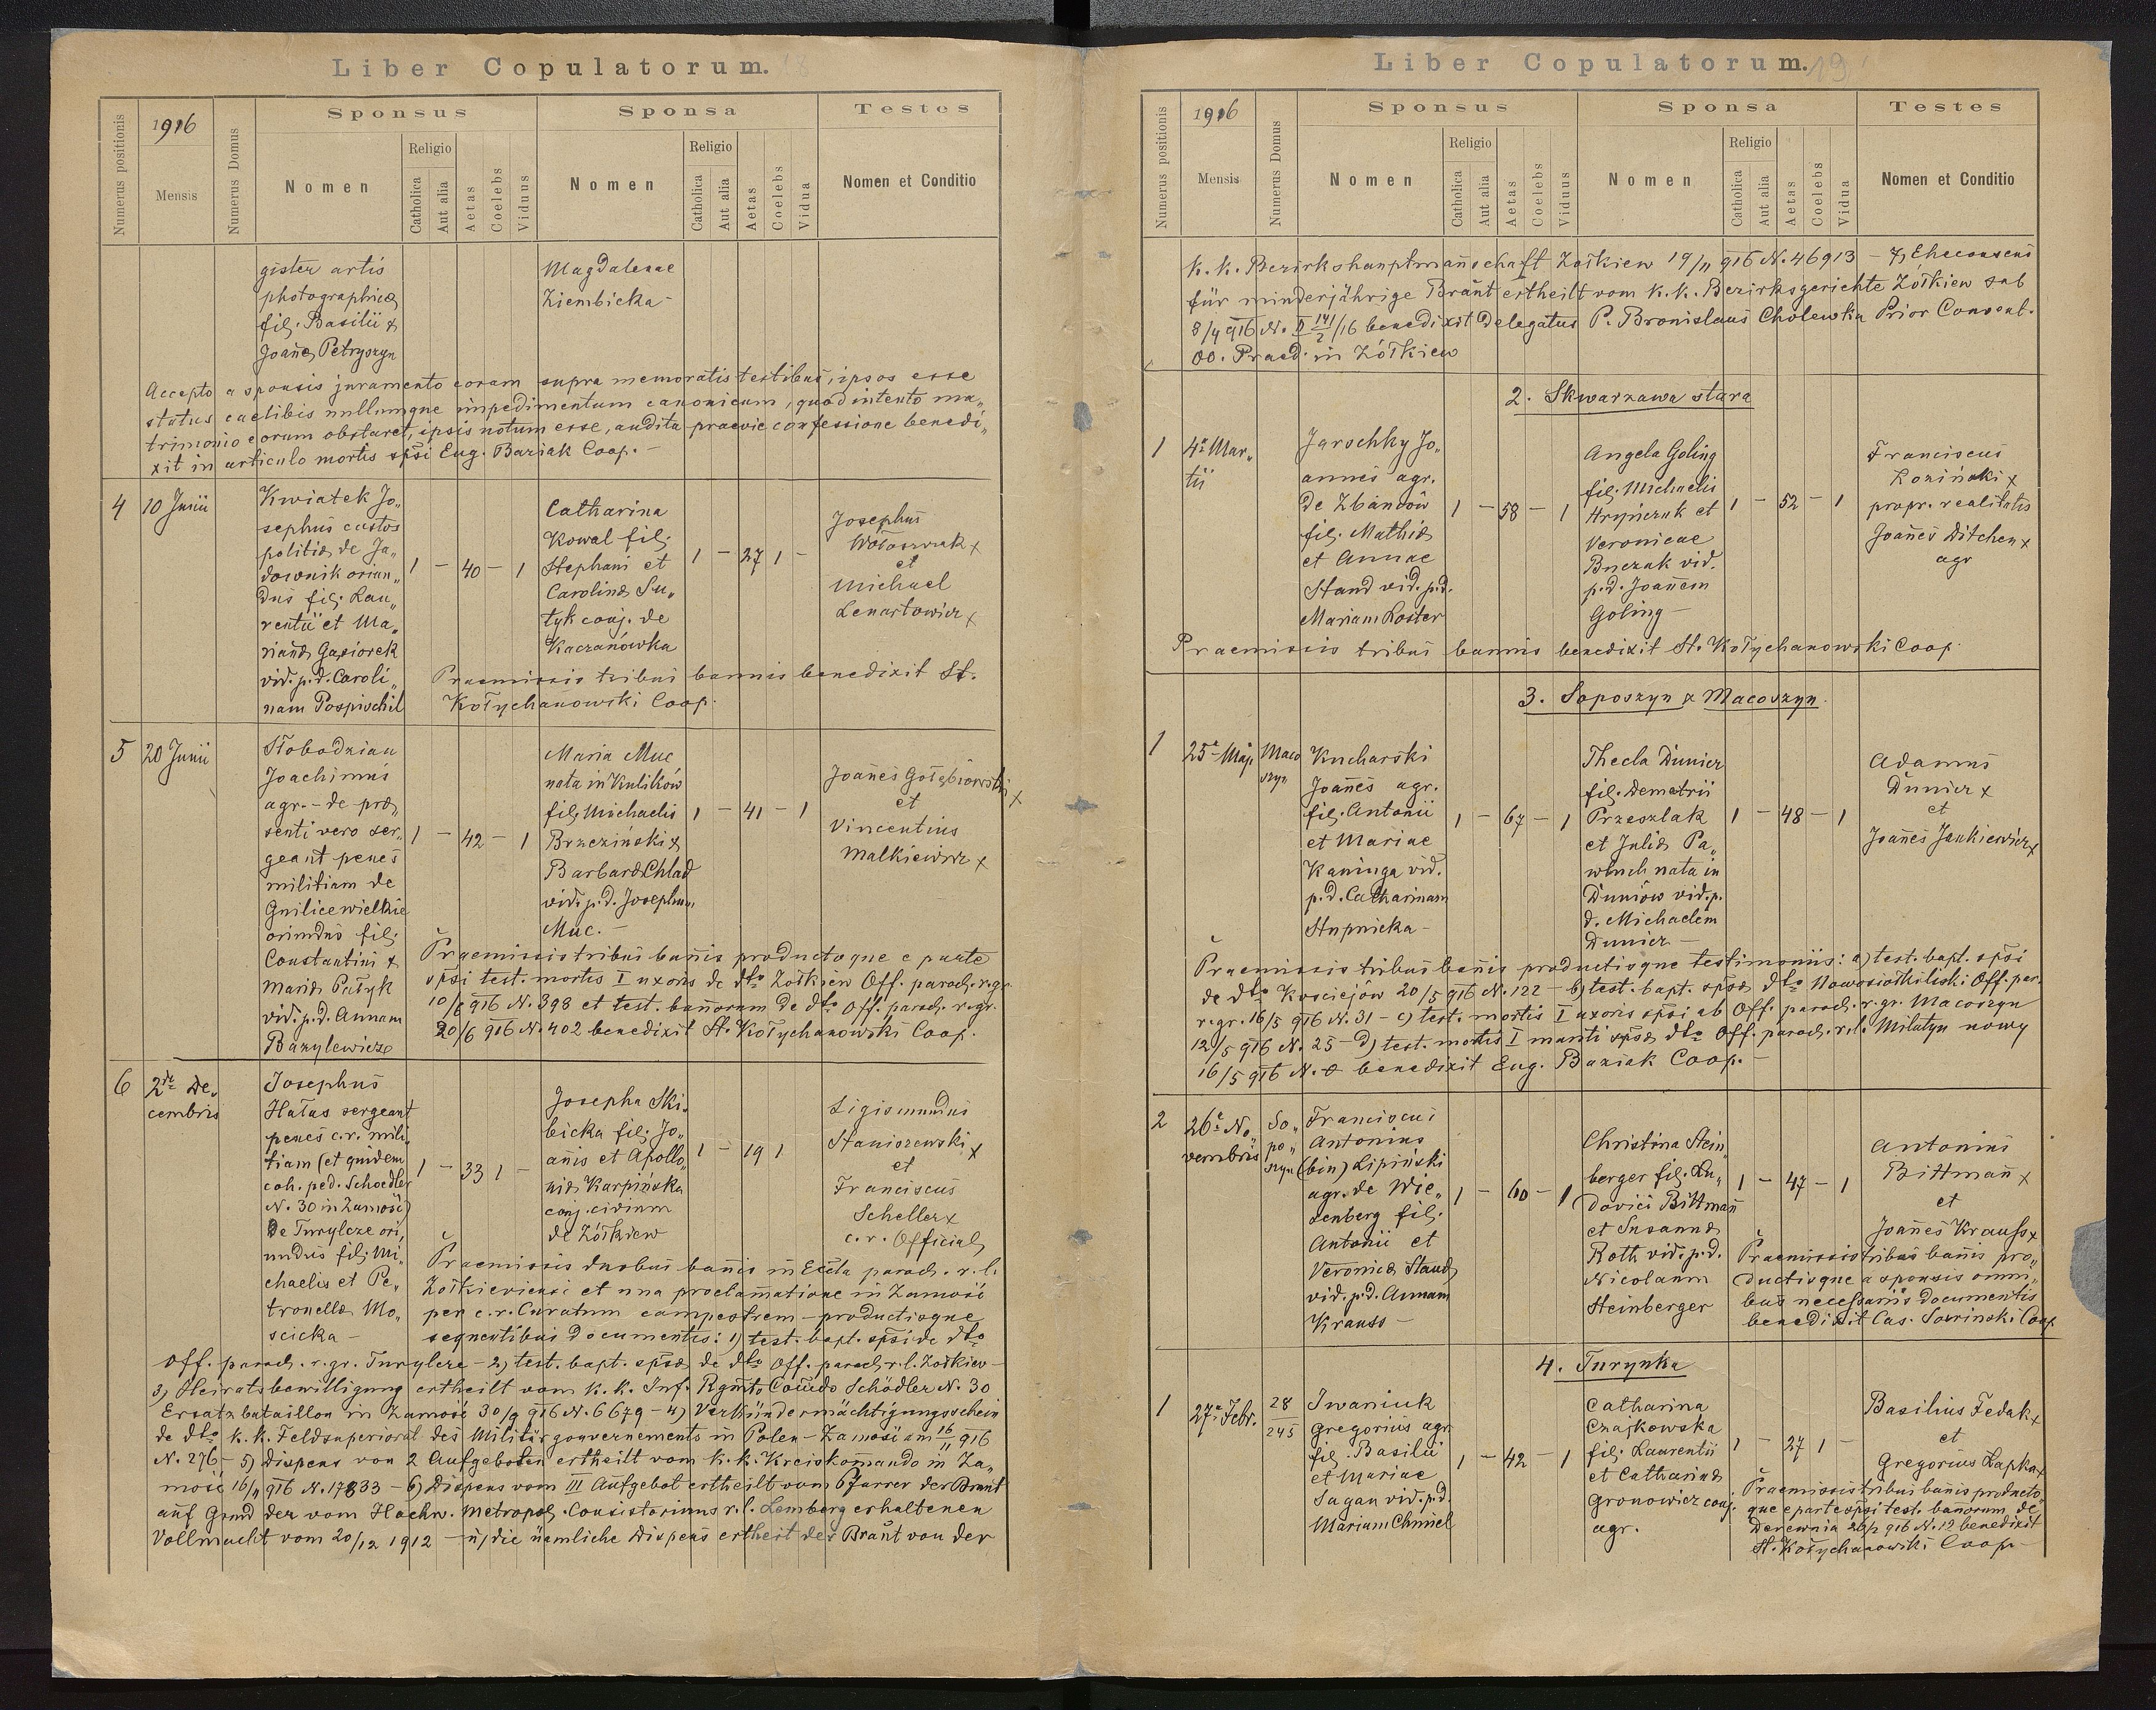 Liber Copulatorum.
Numerus positionis
1916
Mensis
Numerus Domus
Sponsus
Nomen
Religio
Catholica
Aut alia
Aetas
Coelebs
Viduus
Sponsa
Nomen
Religio
Catholica
Aut alia
Aetas
Coelebs
Vidua
Testes
Nomen et Conditio
gister artis
photographicae
fil. Basilii &
Joannae Petryszyn
Magdalenae
Ziembicka -
Accepto a sponsis juramento coram supra memoratis testibus, ipsos esse
status caelibis nullumque impedimentum canonicum, quod intento ma„
trimonio eorum obstaret, ipsis notum esse, audita praevie confessione benedi„
xit in articulo mortis spsi Eug. Baziak Coop. -
4
10 Junii
Kwiatek Jo„
sephus custos
politiae de Ja„
downik oriun„
dus fil. Lau„
rentii et Ma„
riannae Gąsiorek
vid. p. d. Caroli„
nam Pospischil
1 - 40 - 1
Catharina
Kowal fil.
Stephani et
Carolinae Su„
tyk conj. de
Kaczanówka
1 - 27 1 -
Josephus
Wołoszczak +
et
Michael
Lenartowicz +
Praemissis tribus bannis benedixit St.
Kołychanowski Coop.
5
20 Junii
Słobodzian
Joachimus
agr. - de prae
senti vero ser„
geant penes
militiam de
Gnilice wielkie
oriundus fil.
Constantini &
Mariae Patyk
vid. p. d. Annam
Bazylewicz
1 - 42 - 1
Maria Muc
nata in Kulików
fil. Michaelis
Brzeziński &
Barbarae Chlad
vid. p. d. Josephum
Muc. -
1 - 41 - 1
Joannes Gołębiowski +
et
Vincentius
Malkiewicz +
Praemissis tribus bannis productoque e parte
spsi test. mortis I uxoris de dto Żółkiew Off. paroch. r. gr.
10/6 916 N. 398 et test. bannorum de dto Off. paroch. r. gr.
20/6 916 N. 402 benedixit St. Kołychanowski Coop.
6
2da De„
cembris
Josephus
Hałas sergeant
penes c. r. mili„
tiam (et quidem
coh. ped. Schoedler
N. 30 in Zamość)
de Turylcze ori„
undus fil. Mi„
chaelis et Pe„
tronellae Mo„
scicka -
1 - 33 1 -
Josepha Ski„
bicka fil. Jo„
annis et Apollo„
niae Karpińska
conj. civium
de Żółkiew
1 - 19 1
Sigismundus
Staniszewski +
et
Franciscus
Scheller +
c. r. Official
Praemissis duobus bannis in Eccla paroch. r. l.
Żółkieviensi et una proclamatione in Zamość
per c. r. Curatum campestrem - productisque
sequentibus documentis: 1) test. bapt. spsi de dto
Off. paroch. r. gr. Turylcze - 2) test. bapt. spsae de dto Off. paroch. r. l. Żółkiew -
3) Heiratsbewilligung ertheilt vom K. K. Inf. Rgmts Comdo Schödler N. 30
Ersatzbataillon in Zamość 30/9 916 N. 6679 - 4) Verkündermächtigungsschein
de dto K. K. Feldsuperiorat des Militärgouvernements in Polen - Zamość am 16/11 916
N. 276 - 5) Dispens von 2 Aufgeboten ertheilt vom K. K. Kreiskommando in Za„
mość 16/11 916 N. 17833 - 6) Dispens vom III Aufgebot ertheilt vom Pfarrer der Braut
auf Grund der vom Hochw. Metropol. Consistoriums r. l. Lemberg erhaltenen
Vollmacht vom 20/12 1912 - die nämliche Dispens ertheilt der Braut von der
Liber Copulatorum. 19
Numerus positionis
1916
Mensis
Numerus Domus
Sponsus
Nomen
Religio
Catholica
Aut alia
Aetas
Coelebs
Viduus
Sponsa
Nomen
Religio
Catholica
Aut alia
Aetas
Coelebs
Vidua
Testes
Nomen et Conditio
K. K. Bezirkshauptmannschaft Żółkiew 19/11 916 N. 46913 - 7) Eheconsens
für minderjährige Braut ertheilt vom K. K. Bezirksgerichte Żółkiew sub
8/4 916 N. II 141/2 /16 benedixit Delegatus P. Bronislaus Cholewka Prior Convent.
OO. Praed. in Żółkiew
2. Skwarzawa stara
1
4a Mar„
tii
Jarschky Jo„
annes agr.
de Zbandów
fil. Mathiae
et Annae
Stand vid. p. d.
Mariam Koster
1 - 58 - 1
Angela Goling
fil. Michaelis
Hryńczuk et
Veronicae
Buczak vid.
p. d. Joannem
Goling -
1 - 52 - 1
Franciscus
Koziński +
propr. realitatis
Joannes Ditchen +
agr
Praemissis tribus bannis benedixit St. Kołychanowski Coop.
3. Soposzyn & Macoszyn.
1
25a Maji
Maco
szyn
Kucharski
Joannes agr.
fil. Antonii
et Mariae
Kaninga vid.
p. d. Catharinam
Stupnicka -
1 - 67 - 1
Thecla Dunicz
fil. Demetrii
Przeszlak
et Juliae Pa„
wluch nata in
Duniów vid. p.
d. Michaelem
Dunicz -
1 - 48 - 1
Adamus
Dunicz +
et
Joannes Jankiewicz +
Praemissis tribus bannis productisque testimoniis: a) test. bapt. spsi
de dto Kościejów 20/5 916 N. 122 - b) test. bapt. spsae dto Nowosiółki liski Off. par.
r. gr. 16/5 916 N. 31 - c) test. mortis I uxoris spsi ab Off. paroch. r. gr. Macoszyn
12/5 916 N. 25 - d) test. mortis I mariti spsae dto Off. paroch. r. l. Milatyn nowy
16/5 916 N. benedixit Eug. Baziak Coop. -
2
26a No„
vembris
So„
po„
szyn
Franciscus
Antonius
(bin) Lipiński
agr. de Wie„
senberg fil.
Antonii et
Veronicae Staud
vid. p. d. Annam
Krauss -
1 - 60 - 1
Christina Stein„
berger fil. Lu„
dovici Bittmann
et Susannae
Roth vid. p. d.
Nicolaum
Steinberger
1 - 47 - 1
Antonius
Bittmann +
et
Joannes Krauss +
Praemissis tribus bannis pro„
ductisque a sponsis omni„
bus necessariis documentis
benedixit Cas. Sowinski Coop
4. Turynka
1
27a Febr.
28
245
Iwaniuk
Gregorius agr.
fil. Basilii
et Mariae
Sagan vid. p. d.
Mariam Chmiel
1 - 42 - 1
Catharina
Czajkowska
fil. Laurentii
et Catharinae
Gronowicz conj.
agr.
1 - 27 1 -
Basilius Fedak +
et
Gregorius Łapka +
Praemissis tribus bannis producto„
que e parte spsi test. bannorum de
Derewnia 26/2 916 N. 12 benedixit
St. Kołychanowski Coop. -